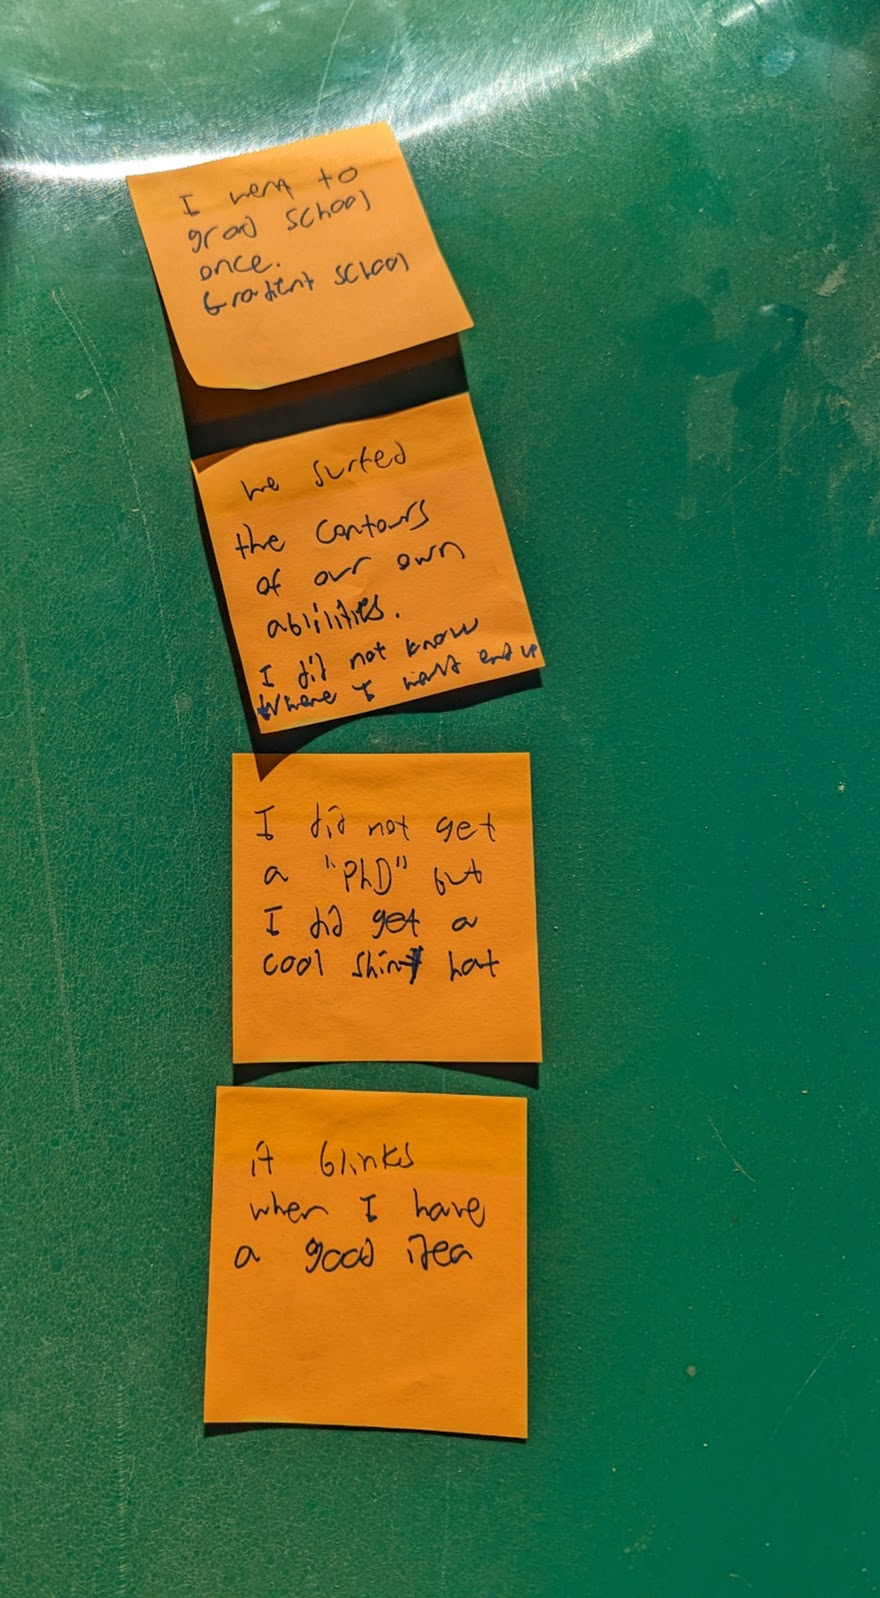 I went to
grad school
once.
Gradient school
we surfed
the contours
of our own
abilities.
I did not know
Where I might end up
I did not get
a "PhD" but
I did get a
cool shiny hat
it blinks
when I have
a good idea